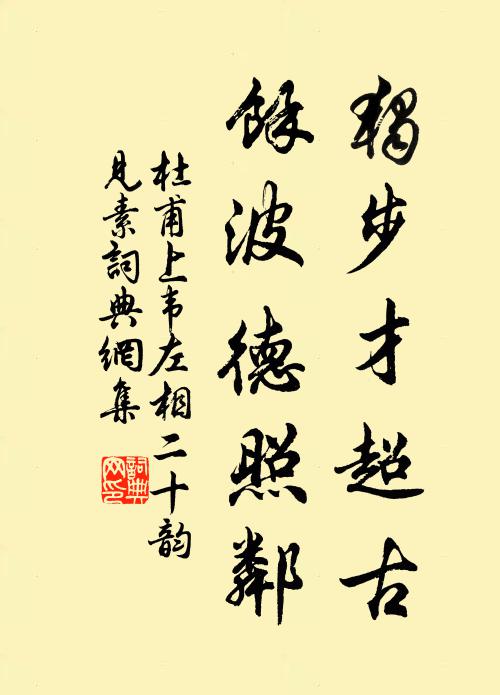 獨步才超古
餘波德照鄰
杜甫上韦左相二十韵
見素詞典網集
詞典
网印